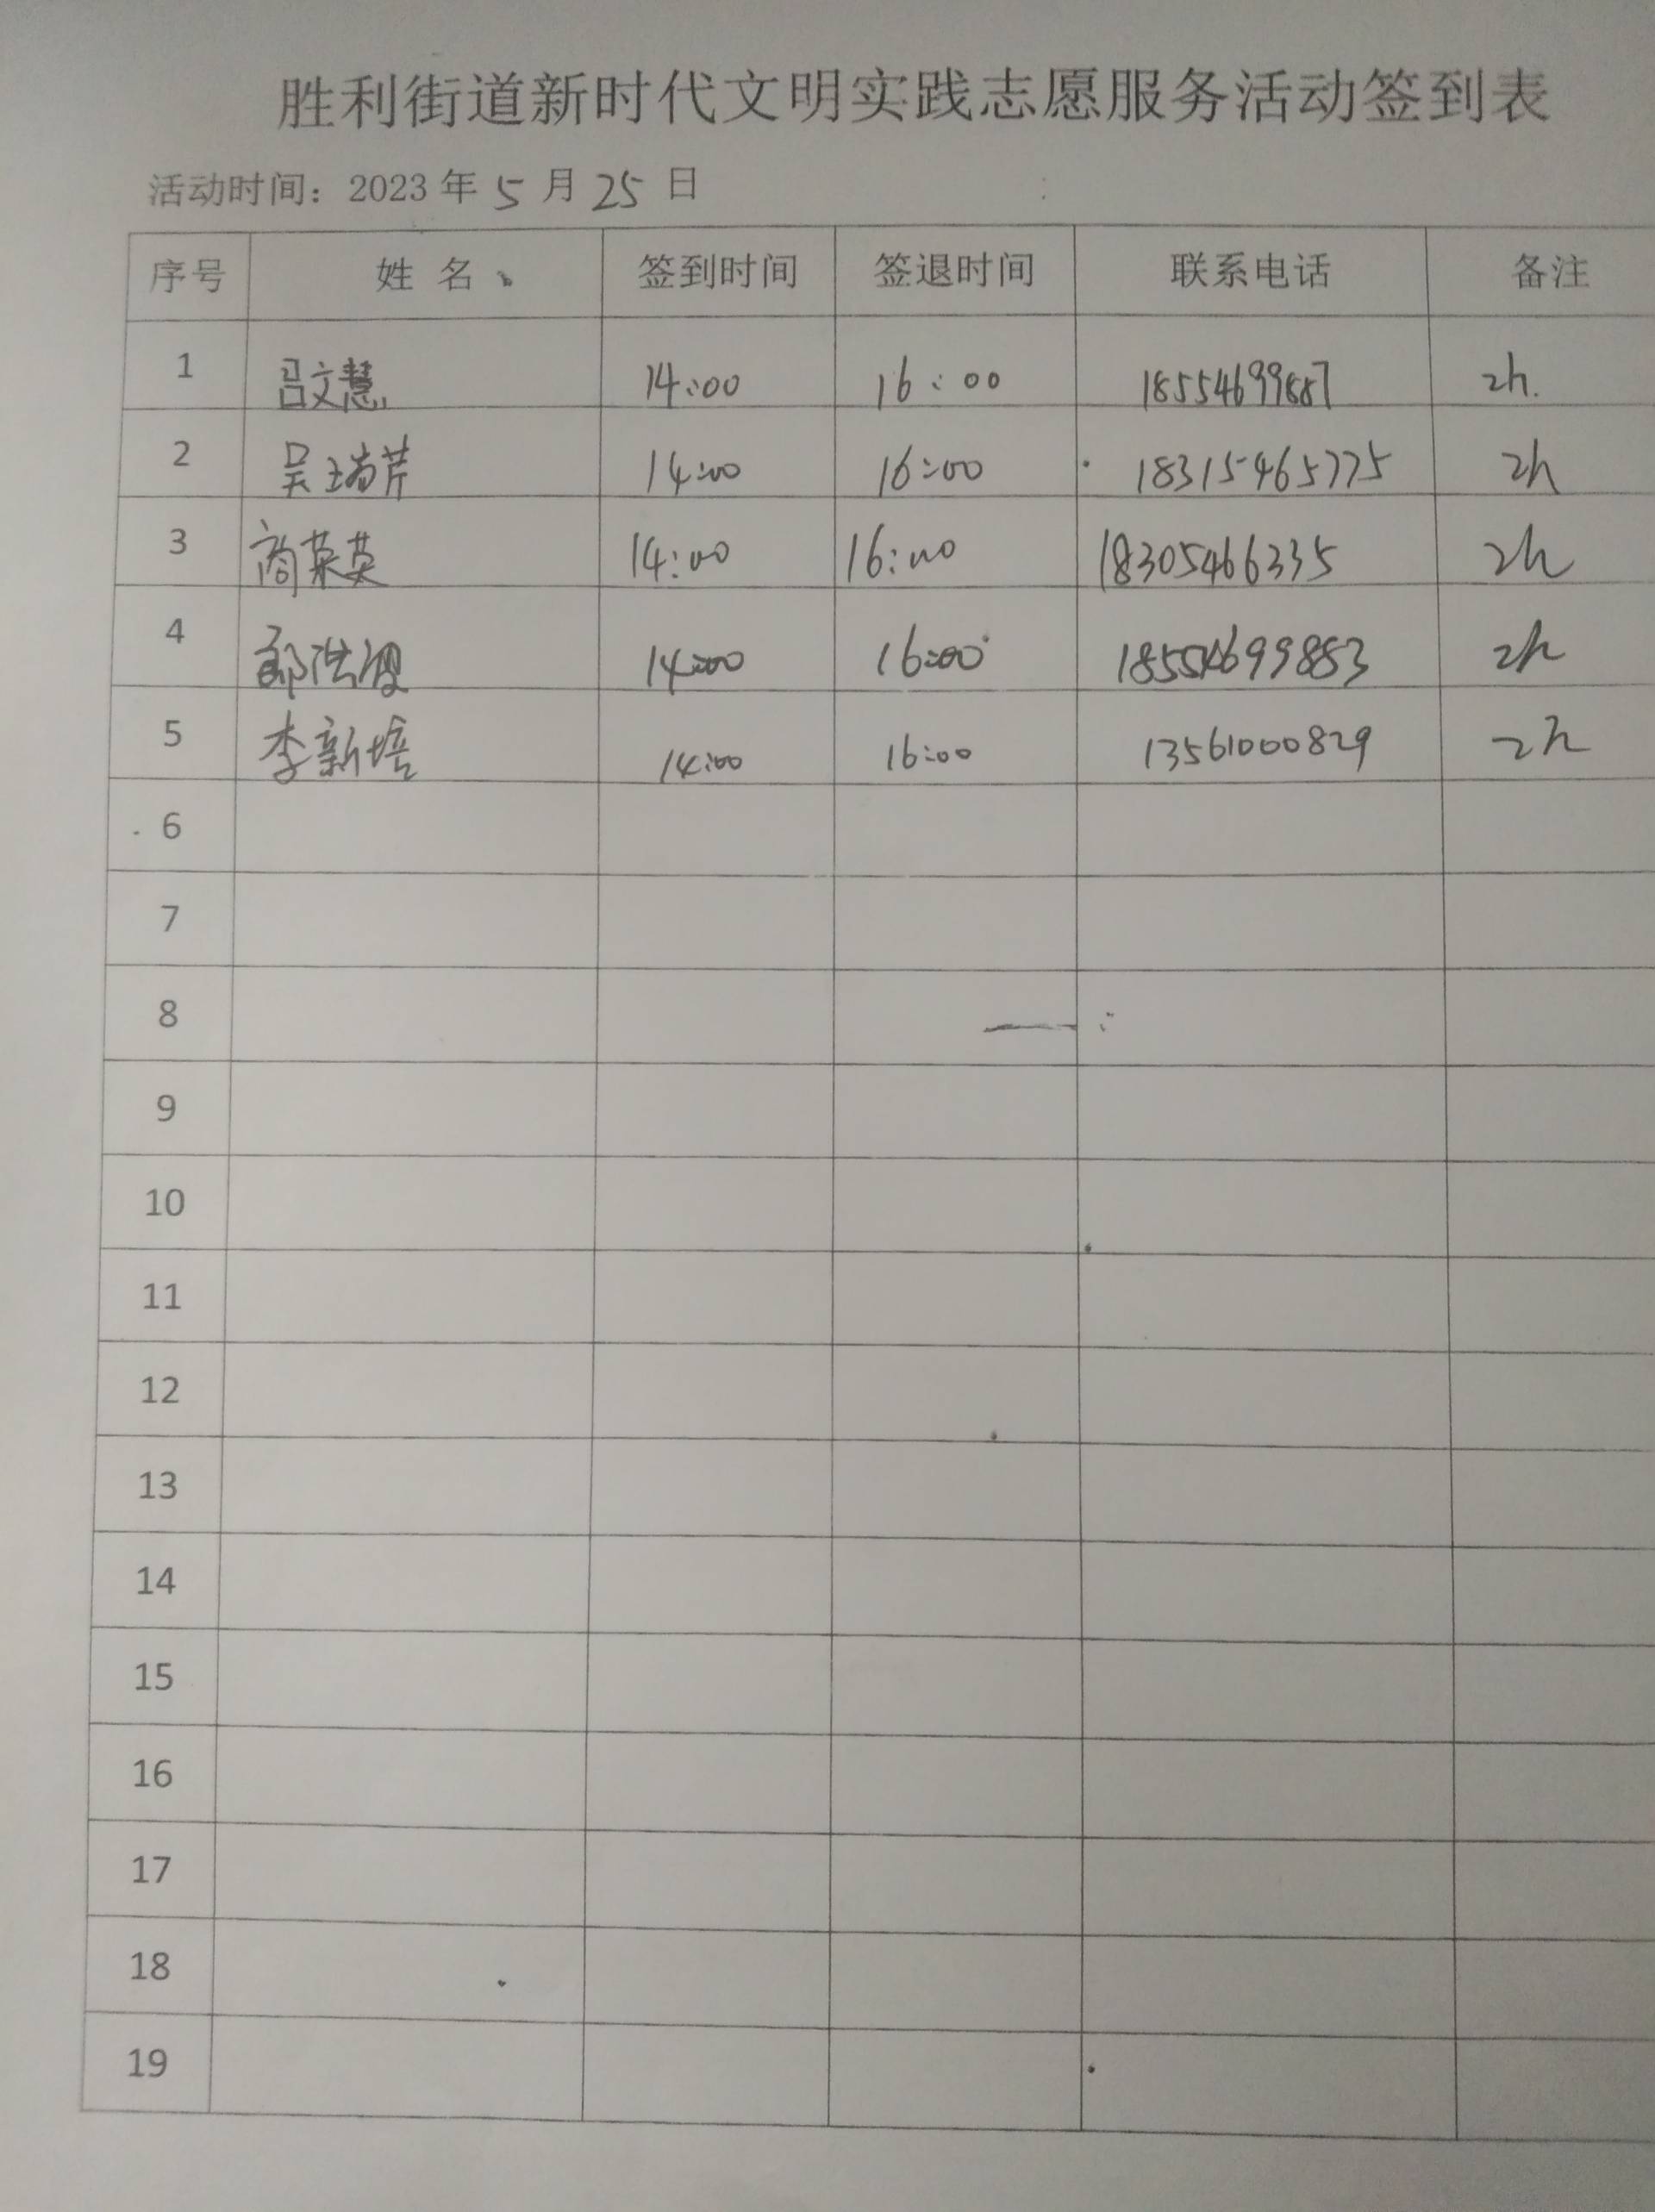 胜利街道新时代文明实践志愿服务活动签到表
活动时间：2023 年 5 月 25 日
序号 姓 名 签到时间 签退时间 联系电话 备注
1 吕文慧 14:00 16:00 18554699887 2h.
2 吴瑞芹 14:00 16:00 18315465775 2h
3 商荣英 14:00 16:00 18305466335 2h
4 14:00 16:00 18554699883 2h
5 李新培 14:00 16:00 13561000829 2h
6
7
8
9
10
11
12
13
14
15
16
17
18
19